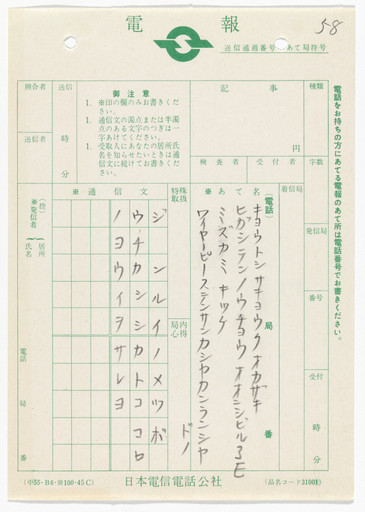 58
電報
送信通過番号 あて局符号
照合者
送信
送信者
時
分
御注意
1. ※印の欄のみお書きください。
1. 通信文の濁点または半濁点のある文字のつぎは一字あけてください。
1. 受取人にあなたの居所氏名を知らせたいときは通信文に続けてお書きください。
記事
円
検査者
受付者
種類
字数
着信局
発信局
番号
受付
時
分
電話をお持ちの方にあてる電報のあて所は電話番号でお書きください。
※あて名
(電話)
局
番
キョウトシサキョウクオカザキ
ヒガシテンノウチョウ オオニシビル3E
ミズカミ キヅケ
ワイヤーピーステンサンカシヤカンランシャ
ドノ
特殊取扱
局内心得
※通信文
ジンルイノメツボ
ウ・チカシシカトココロ
ノヨウイヲサレヨ
(控)
※発信者
居所
氏名
電話
局
番
(中55・B6・㊞100・45C)
日本電信電話公社
(品名コード3100E)